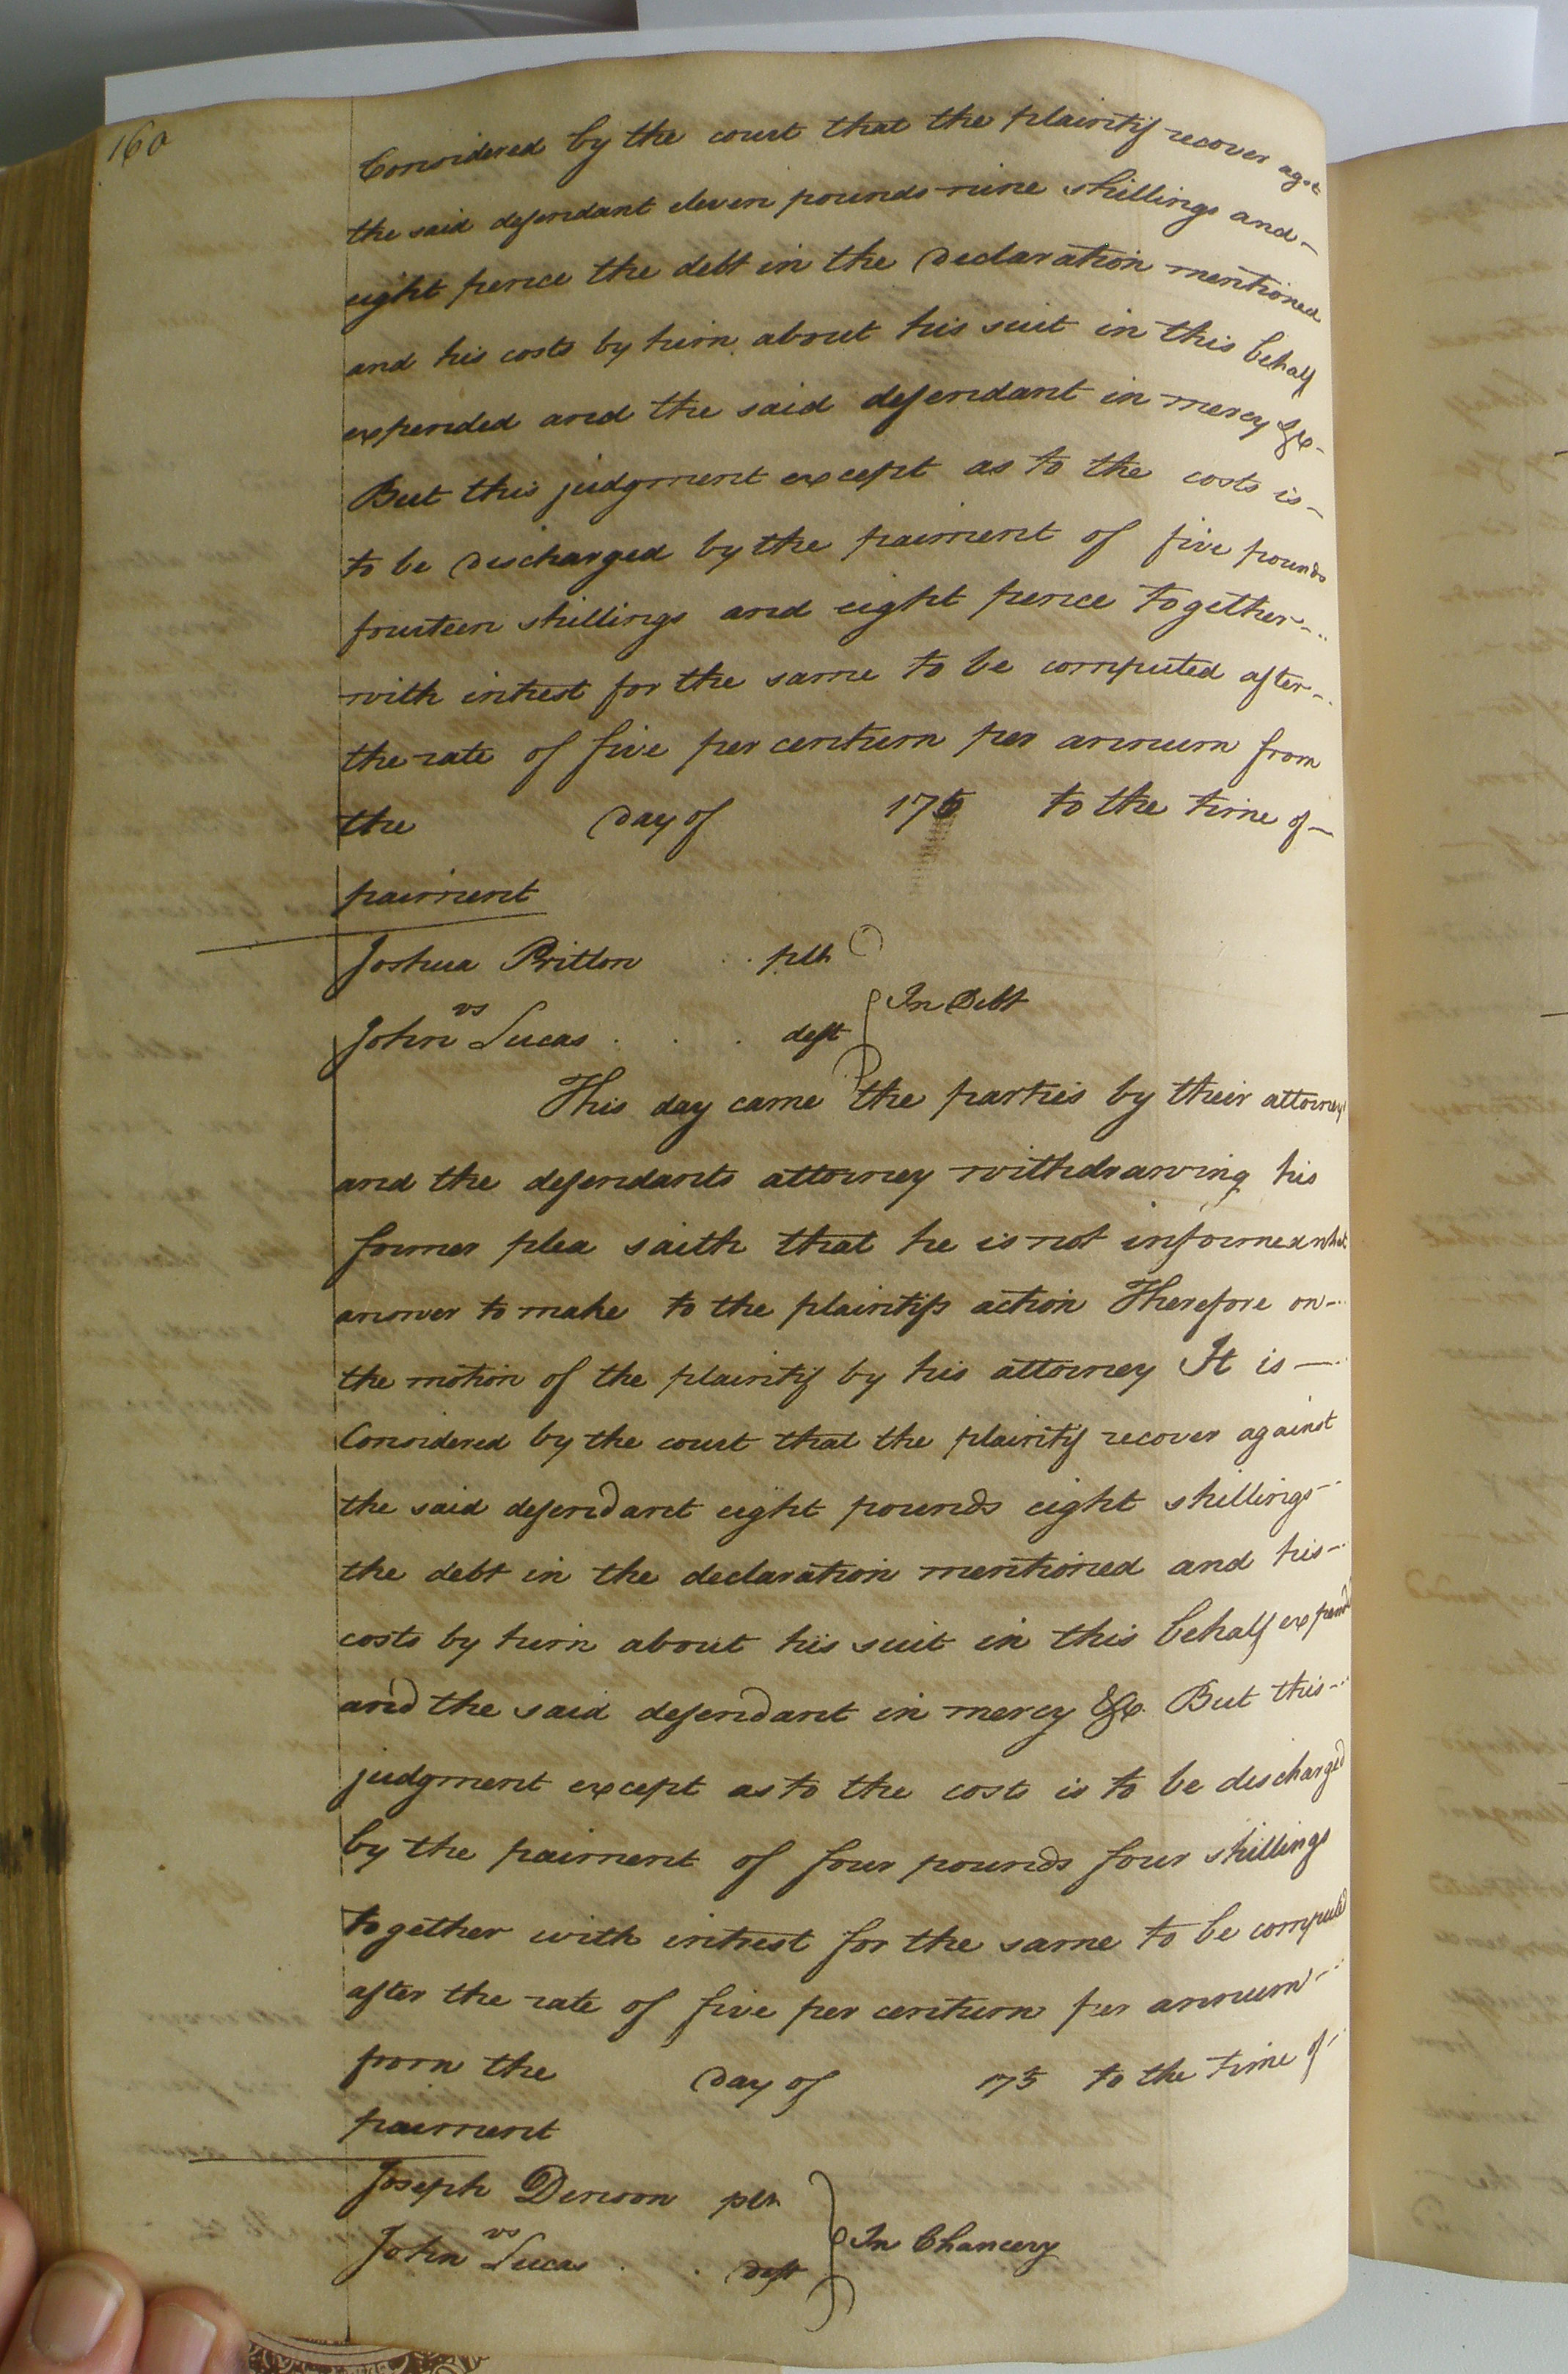 160
Considered by the court that the plaintif recover agst
the said defendant eleven pounds nine shillings and
eight pence the debt in the Declaration mentioned
and his costs by him about his suit in this behalf
expended and the said defendant in mercy &c
But this judgment except as to the costs is
to be Discharged by the paiment of five pounds
fourteen shillings and eight pence together
with intrest for the same to be computed after
the rate of five per centum per annum from
the Day of 175 to the time of
paiment
Joshua Pritton plt
vs
John Lucas deft
In Debt
This day came the parties by their attorneys
and the defendants attorney withdrawing his
former plea saith that he is not informed what
answer to make to the plaintifs action Therefore on
the motion of the plaintif by his attorney It is
Considered by the court that the plaintif recover against
the said defendant eight pounds eight shillings
the debt in the declaration mentioned and his
costs by him about his suit in this behalf expend
and the said defendant in mercy &c. But this
judgment except as to the costs is to be discharged
by the paiment of four pounds four shillings
together with intrest for the same to be computed
after the rate of five per centum per annum
from the Day of 175 to the time of
paiment
Joseph Denson plt
vs
John Lucas Deft
In Chancery